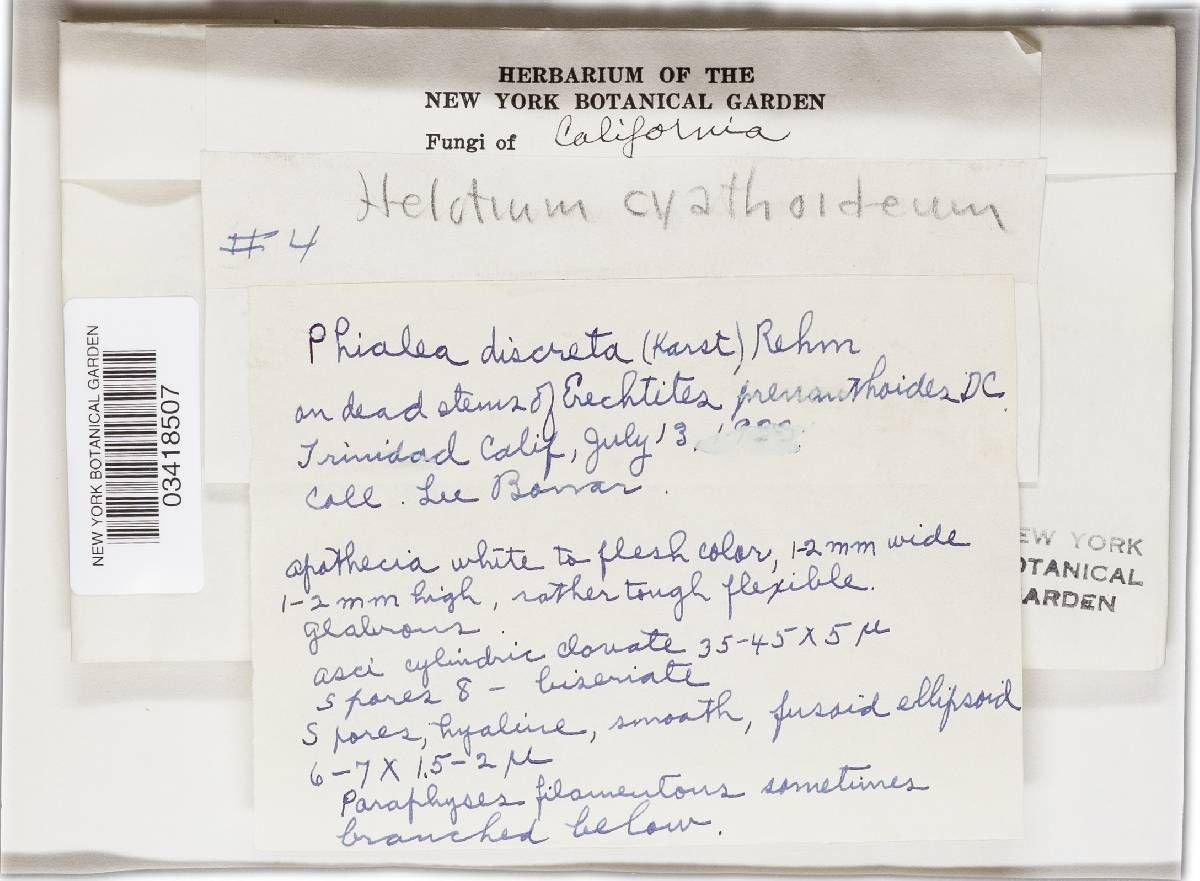 HERBARIUM OF THE
NEW YORK BOTANICAL GARDEN
Fungi of California
Helotium cyathoideum
# 4
Phialea discreta (Karst) Rehm
on dead stems of Erechtites prenanthoides DC.
Trinidad Calif, July 13,
Coll. Lee Bonar.
apothecia white to flesh color, 1-2 mm wide
1-2 mm high, rather tough flexible.
glabrous.
asci cylindric clavate 35-45 X 5 μ
Spores 8 - biseriate
Spores, hyaline, smooth, fusoid ellipsoid
6-7 X 1.5-2 μ
Paraphyses filamentous sometimes
branched below.
NEW YORK BOTANICAL GARDEN
03418507
EW YORK
OTANICAL
ARDEN